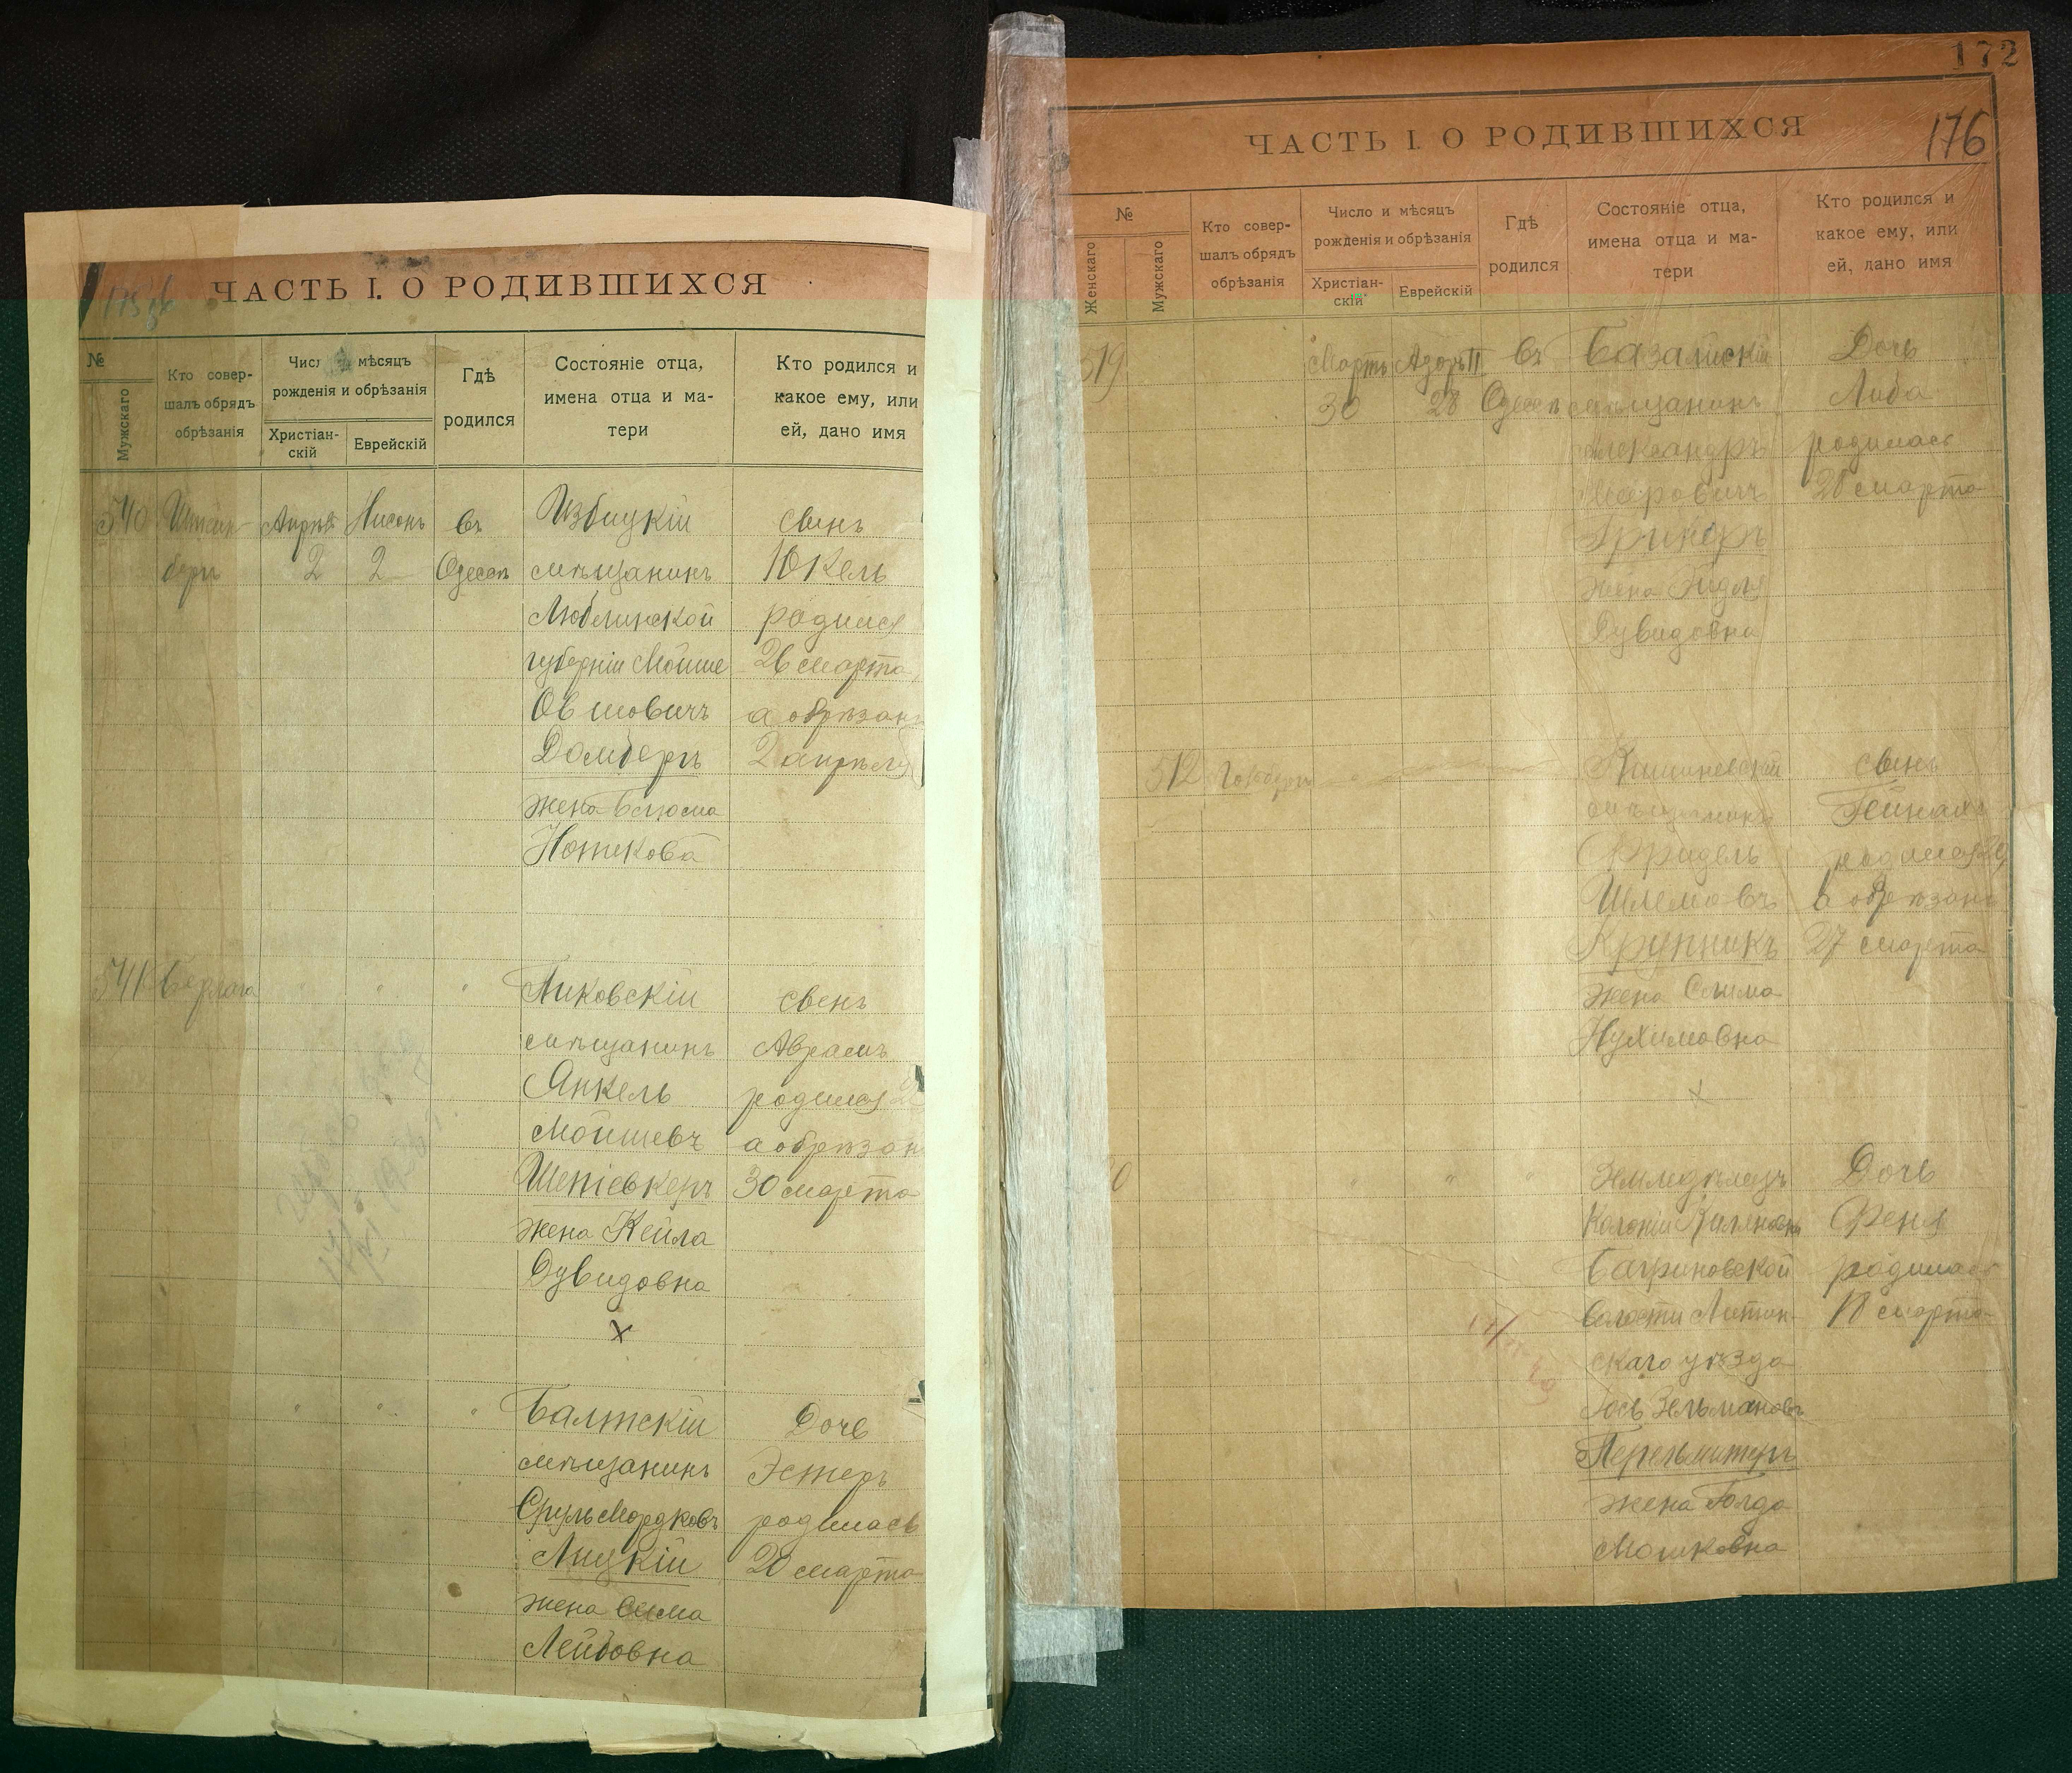 ЧАСТЬ I. О РОДИВШИХСЯ
№
Мужскаго
Кто совер-
шалъ обрядъ
обрѣзанія
мѣсяцъ
рожденія и обрѣзанія
Христіан-
скій
Еврейскій
Гдѣ
родился
Состояніе отца,
имена отца и ма-
тери
Кто родился и
какое ему, или
ей, дано имя
540
Апрѣль
2
Нисонъ
2
въ
Одессѣ
Избицкій
мѣщанинъ
Люблинской
губерніи Мойше
Овшовичъ
Домберъ
жена Блюма
Нотикова
сынъ
Юкель
родился
26 марта
а обрѣзанъ
2 апрѣля
541
Ликовскій
мѣщанинъ
Янкель
Мойшевъ
Шепіевкеръ
жена Кейла
Дувидовна
х
сынъ
Аврамъ
родился
а обрѣзан
30 марта
Балтскій
мѣщанинъ
Сруль Мордковъ
Лицкій
жена Сима
Лейбовна
Дочь
Эстеръ
родилась
20 марта
172
176
ЧАСТЬ I. О РОДИВШИХСЯ
№
Женскаго
Мужскаго
Кто совер-
шалъ обрядъ
обрѣзанія
Число и мѣсяцъ
рожденія и обрѣзанія
Христіан-
скій
Еврейскій
Гдѣ
родился
Состояніе отца,
имена отца и ма-
тери
Кто родился и
какое ему, или
ей, дано имя
519
Мартъ
30
Адоръ II
28
въ
Одессѣ
мѣщанинъ
Александръ
Мееровичъ
жена
Дувидовна
Дочь
Либа
родилась
28 марта
512
Кишиневскій
мѣщанинъ
Фридель
Шлемовъ
Крупникъ
жена Сима
Нухимовна
х
сынъ
родился
а обрѣзанъ
27 марта
Земледѣлецъ
Колоніи
Багриновской
волости Литин-
скаго уѣзда
Іось Зельмановъ
Перельмитеръ
жена Голда
Мошковна
Дочь
Феня
родилась
18 марта